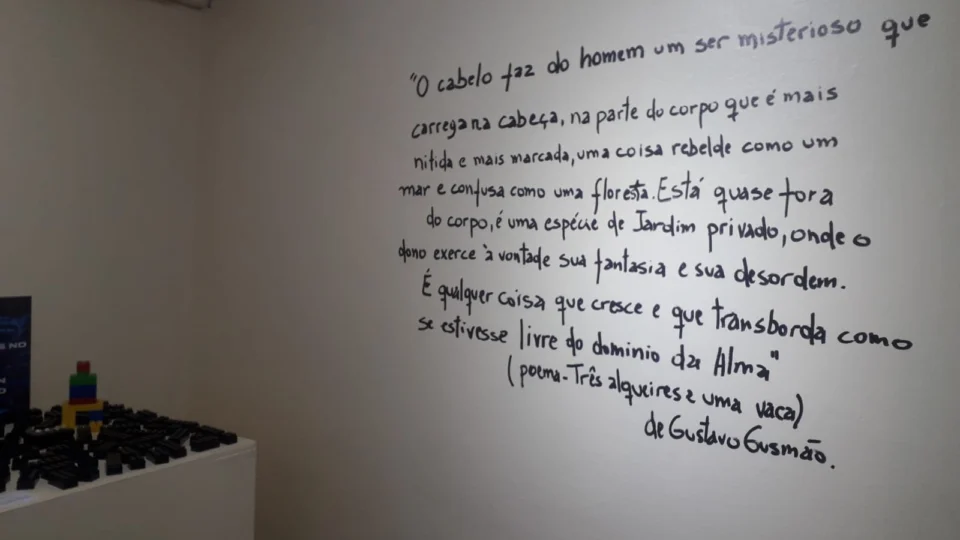 "O cabelo faz do homem um ser misterioso que
carrega na cabeça, na parte do corpo que é mais
nitida e mais marcada, uma coisa rebelde como um
mar e confusa como uma floresta. Está quase fora
do corpo, é uma espécie de Jardim privado, onde o
dono exerce à vontade sua fantasia e sua desordem.
É qualquer coisa que cresce e que transborda como
se estivesse livre do dominio da Alma"
(poema - Três alqueires e uma vaca)
de Gustavo Gusmão.